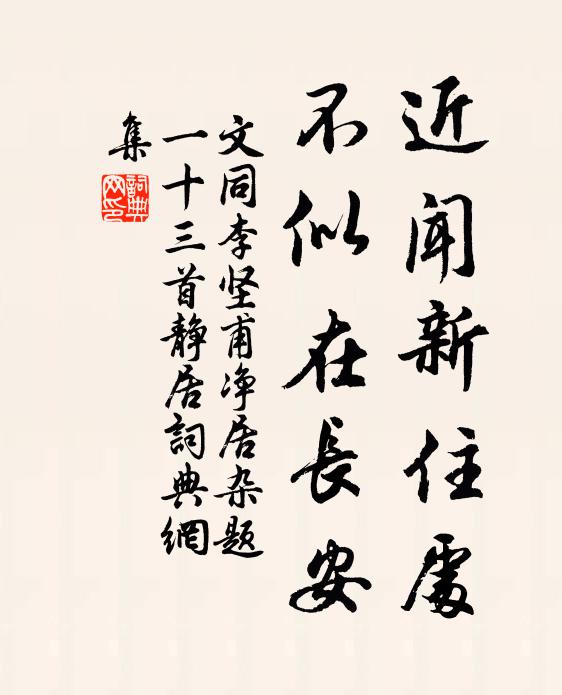 近闻新住處
不似在長安
文同李坚甫净居杂题
一十三首静居詞典網
集
詞典网印